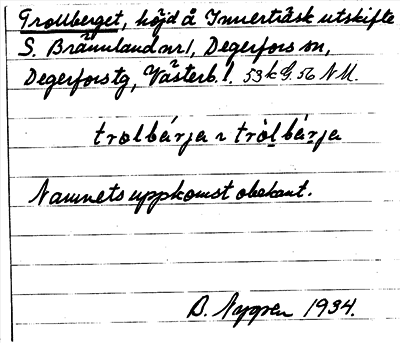 Trollberget, höjd å Innerträsk utskifte
S. Brännland nr 1, Degerfors sn,
Degerfors tg, Västerb. l. 53 k G. 56 N M.
trolbárja ~ tròlbárja
Namnets uppkomst obekant.
B. Nygren 1934.